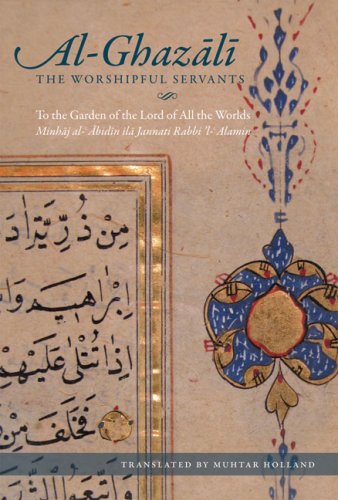 Al-Ghazālī
THE WORSHIPFUL SERVANTS
To the Garden of the Lord of All the Worlds
Minhāj al-ʿĀbidīn ilā Jannati Rabbi ʾl-ʿĀlamīn
مِنْ ذُرِّيَّةِ
اِبْرٰهِيمَ
اِذَا تُتْلٰى عَلَيْهِمْ
فَخَلَفَ مِنْ
وَاتَّبَعُوا
TRANSLATED BY MUHTAR HOLLAND